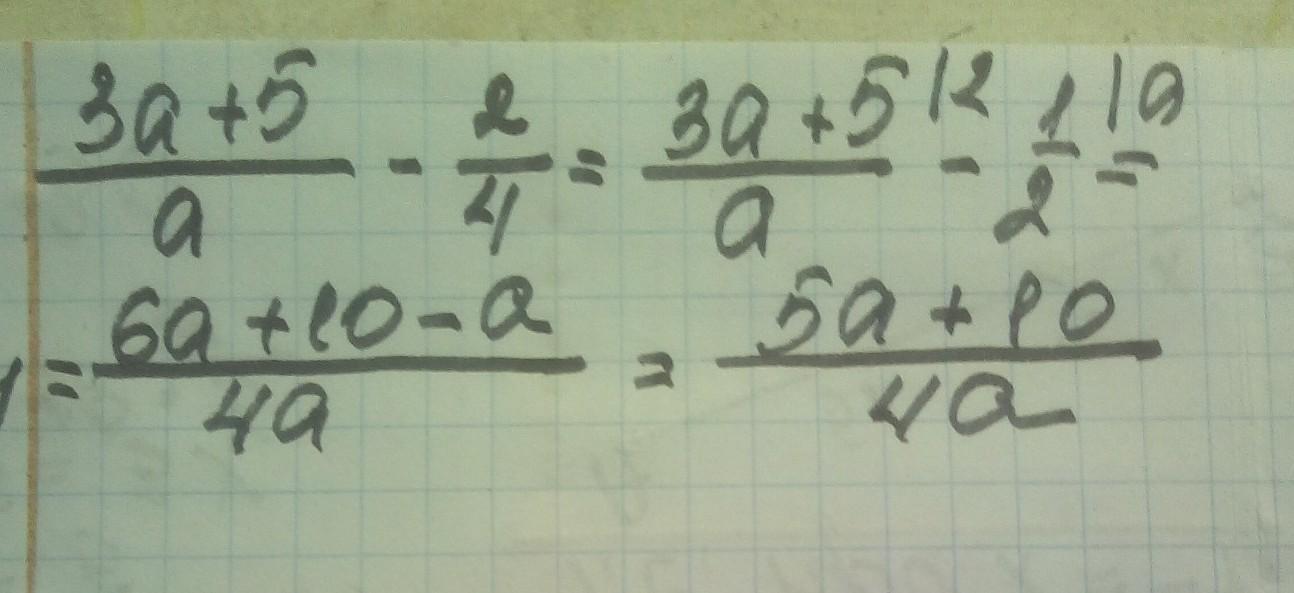 (3a+5)/a - 2/4 = (3a+5)/a |2 - 1/2 |a =
= (6a+10-a)/4a = (5a+10)/4a